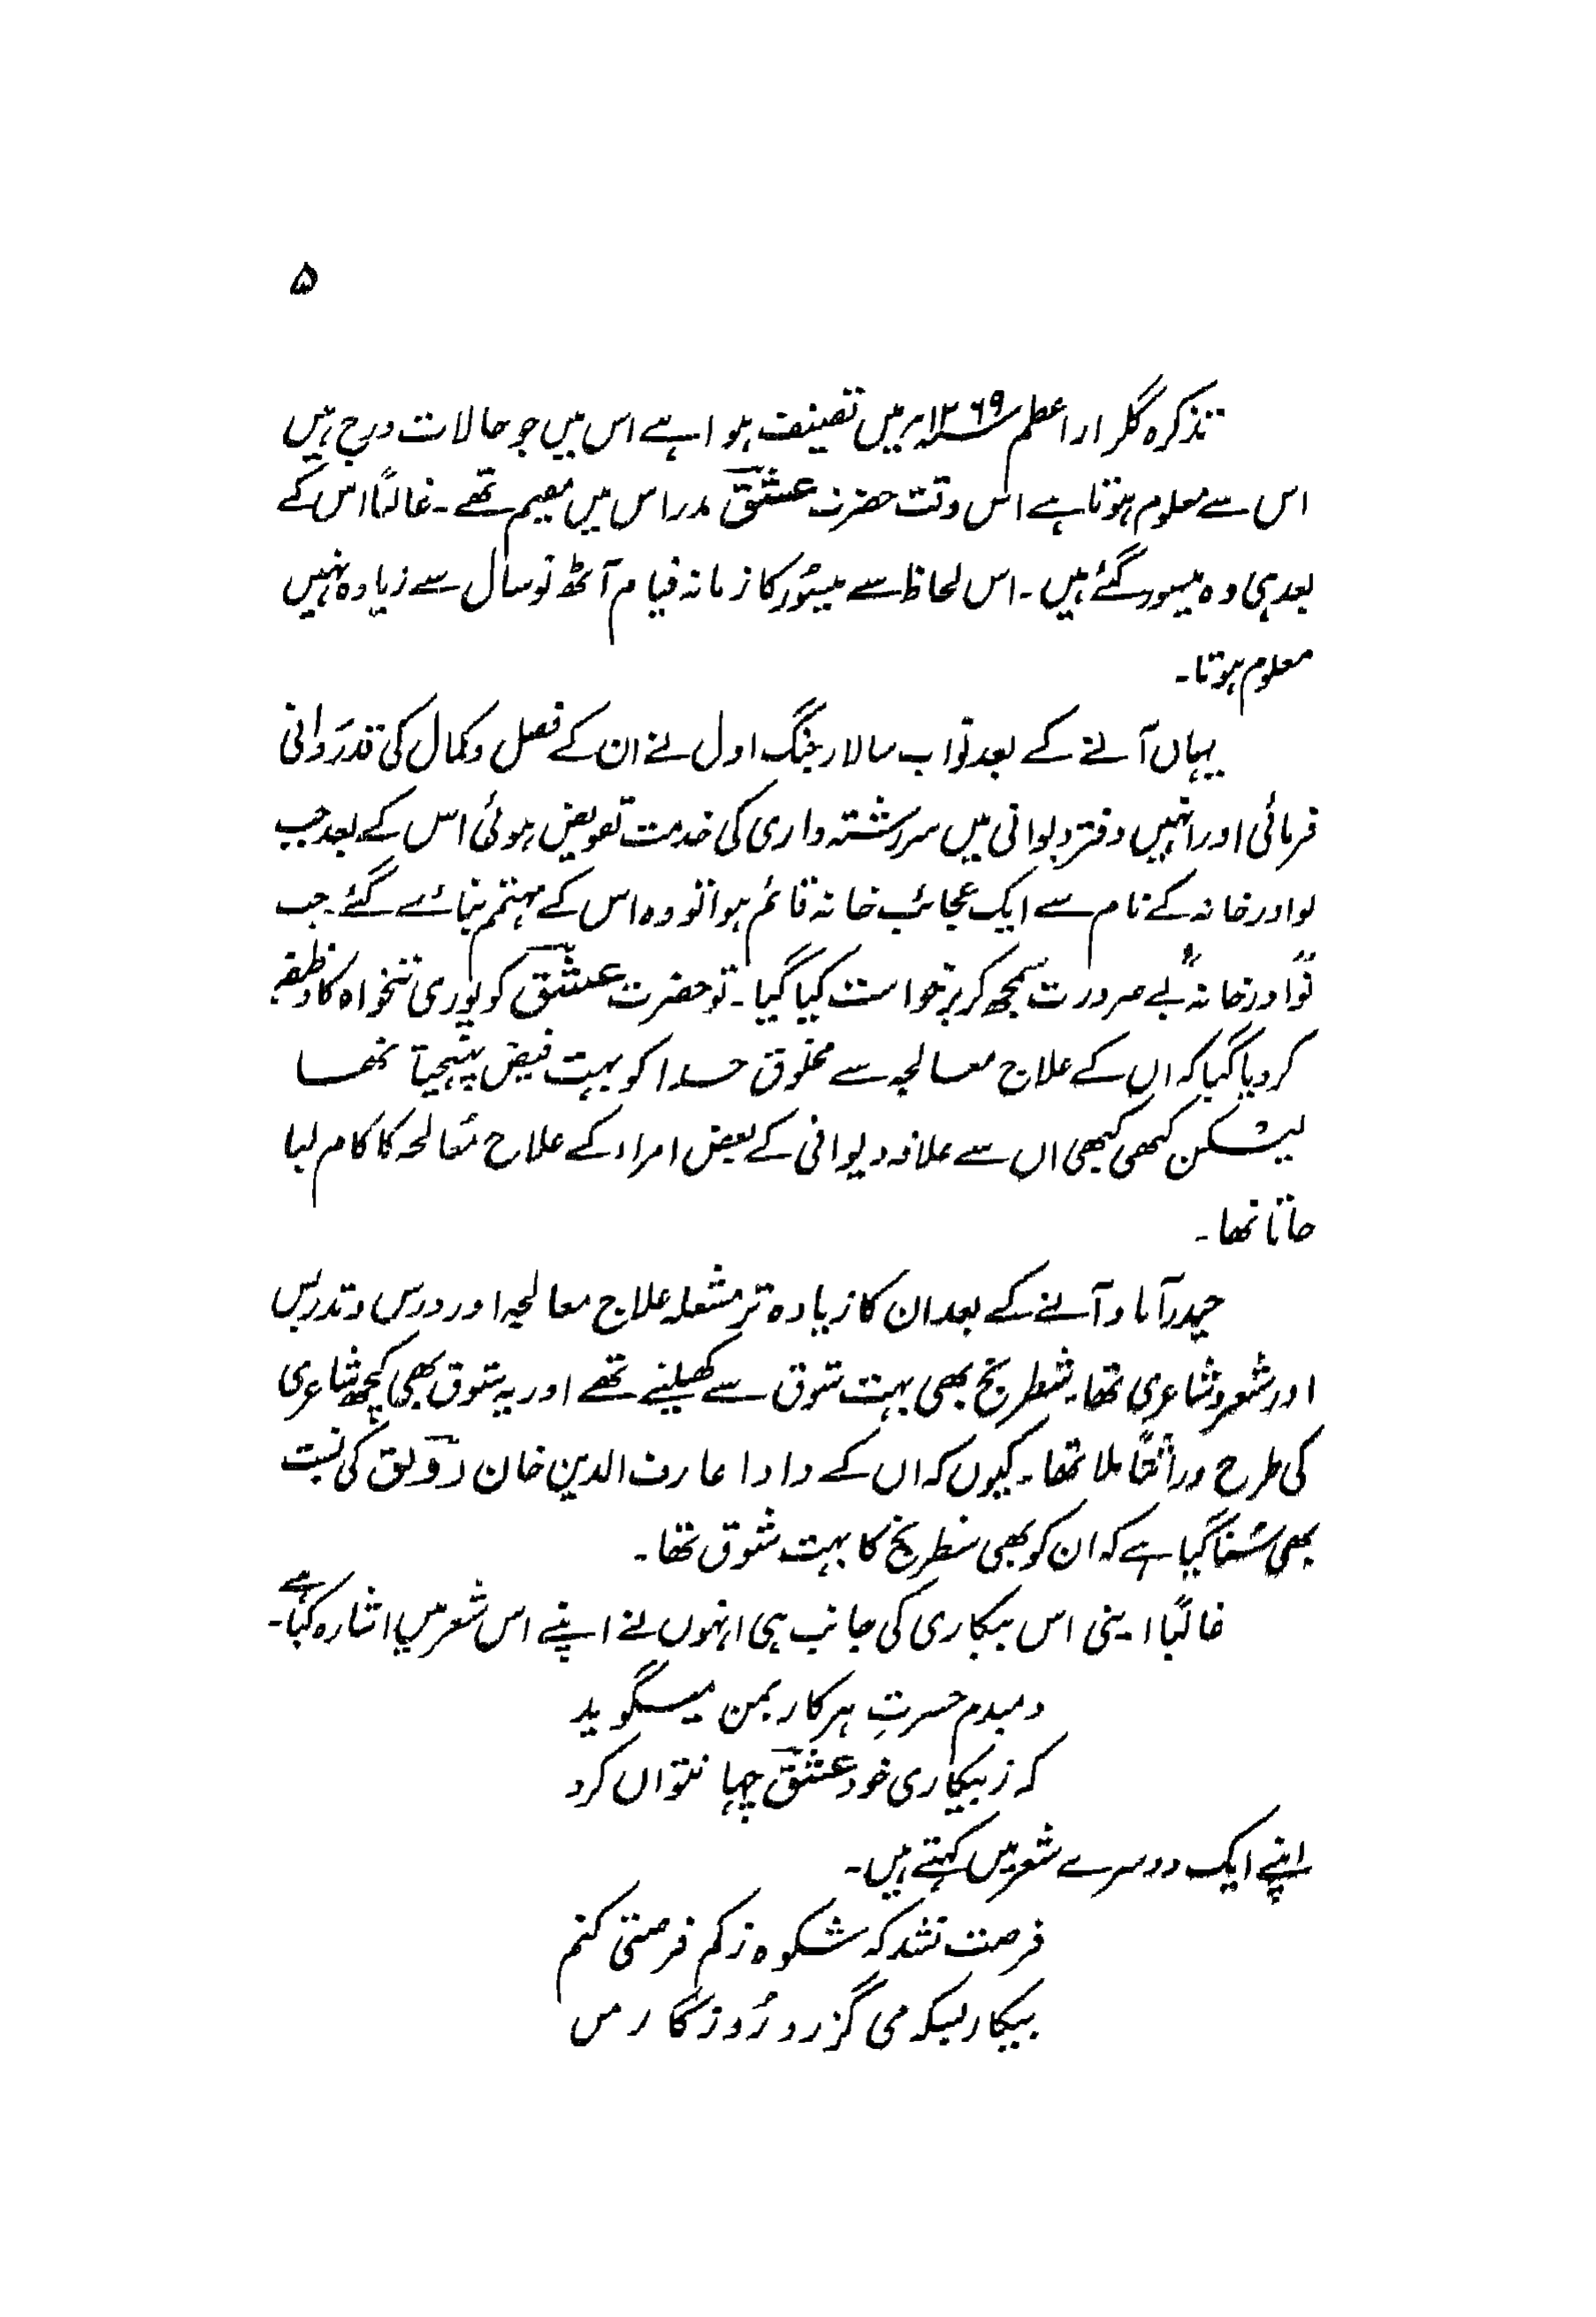 ۵
تذکرہ گلزار اعظم ۱۲۶۹ھ میں تصنیف ہوا ہے اس میں جو حالات درج ہیں
اس سے معلوم ہوتا ہے اس وقت حضرت عشقؔ مدراس میں مقیم تھے۔ غالباً اس کے
بعد ہی وہ میسور گئے ہیں۔ اس لحاظ سے میسور کا زمانہ قیام آٹھ نو سال سے زیادہ نہیں
معلوم ہوتا۔
یہاں آنے کے بعد نواب سالار جنگ اول نے ان کے فضل و کمال کی قدر دانی
فرمائی اور انہیں دفتر دیوانی میں سررشتہ داری کی خدمت تفویض ہوئی اس کے بعد جب
نوادر خانہ کے نام سے ایک عجائب خانہ قائم ہوا تو وہ اس کے مہتمم بنائے گئے۔ جب
"نوادر خانہ" بے ضرورت سمجھ کر برخواست کیا گیا۔ تو حضرت عشقؔ کو پوری تنخواہ کا وظیفہ
کر دیا گیا کہ ان کے علاج معالجہ سے مخلوق خدا کو بہت فیض پہنچتا تھا
لیکن کبھی کبھی ان سے علاقہ دیوانی کے بعض امراء کے علاج معالجہ کا کام لیا
جاتا تھا۔
حیدرآباد آنے کے بعد ان کا زیادہ تر مشغلہ علاج معالجہ اور درس و تدریس
اور شعر و شاعری تھا۔ شطرنج بھی بہت شوق سے کھیلتے تھے اور یہ شوق بھی کچھ شاعری
کی طرح وراثتاً ملا تھا۔ کیوں کہ ان کے دادا عارف الدین خان رونقؔ کی نسبت
بھی سُنا گیا ہے کہ ان کو بھی شطرنج کا بہت شوق تھا۔
غالباً اپنی اس بیکاری کی جانب ہی انہوں نے اپنے اس شعر میں اشارہ کیا ہے۔
دمبدم حسرتِ ہر کار بمن میگوید
کہ ز بیکاری خود عشقؔ چہا نتواں کرد
اپنے ایک دوسرے شعر میں کہتے ہیں۔
فرصت نشد کہ شکوہ ز کم فرصتی کنم
بیکار بسکہ می گزرد رُوزگار من